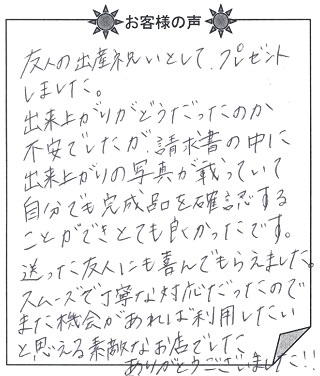 お客様の声
友人の出産祝いとして、プレゼント
しました。
出来上がりがどうだったのか
不安でしたが、請求書の中に
出来上がりの写真が載っていて
自分でも完成品を確認する
ことができとても良かったです。
送った友人にも喜んでもらえました。
スムーズで丁寧な対応だったので
また機会があれば利用したい
と思える素敵なお店でした
ありがとうございました!!